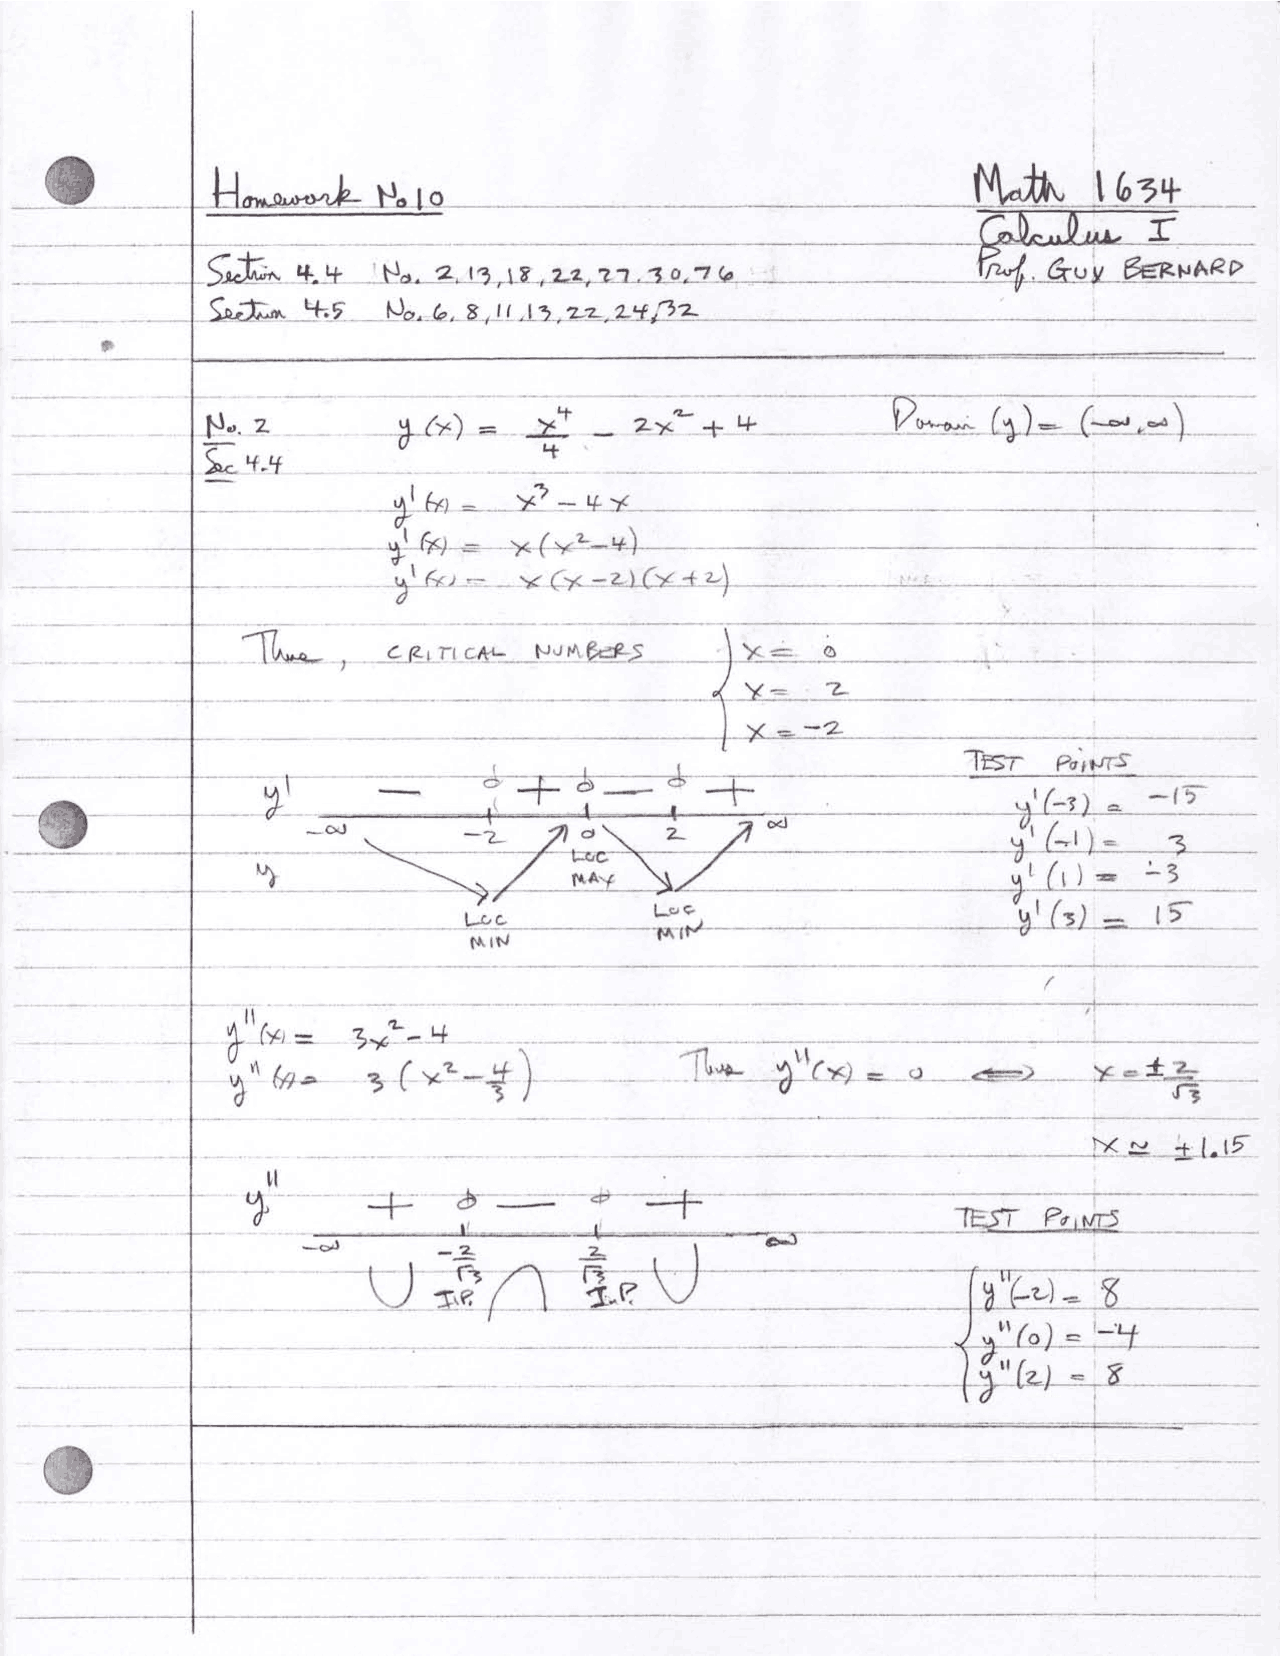 Homework No 10
Math 1634
Calculus I
Prof. GUY BERNARD
Section 4.4 No. 2, 13, 18, 22, 27, 30, 76
Section 4.5 No. 6, 8, 11, 13, 22, 24, 32
No. 2
Sec 4.4
y(x) = x⁴/4 − 2x² + 4 Domain (y) = (−∞, ∞)
y'(x) = x³ − 4x
y'(x) = x(x² − 4)
y'(x) = x(x − 2)(x + 2)
Thus, CRITICAL NUMBERS { x = 0
x = 2
x = −2
TEST POINTS
y'(−3) = −15
y'(−1) = 3
y'(1) = −3
y'(3) = 15
y' − 0 + 0 − 0 +
−∞ −2 0 2 ∞
y
LOC MAX
LOC MIN
LOC MIN
y''(x) = 3x² − 4
y''(x) = 3(x² − 4/3) Thus y''(x) = 0 ⟺ x = ± 2/√3
x ≃ ±1.15
y'' + 0 − 0 +
−∞ −2/√3 2/√3 ∞
I.P. In.P.
TEST POINTS
y''(−2) = 8
y''(0) = −4
y''(2) = 8